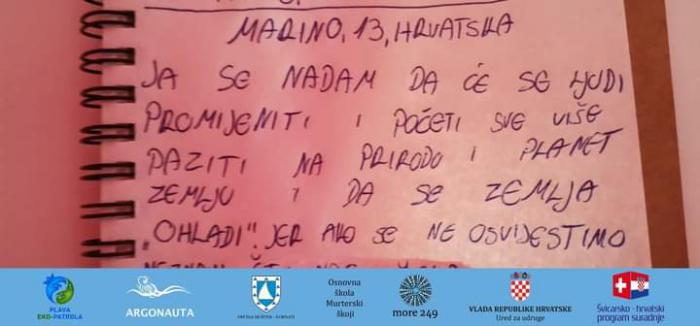 MARINO, 13, HRVATSKA
JA SE NADAM DA ĆE SE LJUDI
PROMIJENITI I POČETI SVE VIŠE
PAZITI NA PRIRODU I PLANET
ZEMLJU I DA SE ZEMLJA
„OHLADI". JER AKO SE NE OSVIJESTIMO
PLAVA
EKO-PATROLA
ARGONAUTA
Osnovna
škola
Murterski
škoji
more 249
VLADA REPUBLIKE HRVATSKE
Ured za udruge
Švicarsko - hrvatski
program suradnje